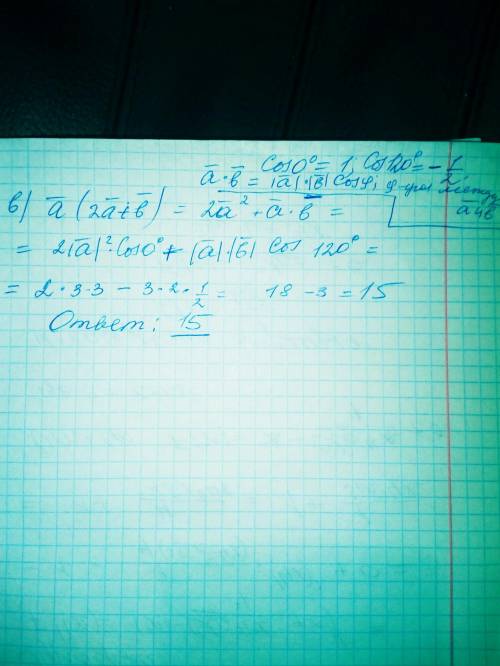 Cos0° = 1, Cos120° = -1/2
a̅·b̅ = |a̅|·|b̅| Cosφ, φ-угол между a̅ и b̅
в) a̅ (2a̅+b̅) = 2a̅² + a̅·b̅ =
= 2|a̅|²·Cos0° + |a̅|·|b̅| Cos 120° =
= 2·3·3 - 3·2·1/2 = 18 - 3 = 15
Ответ: 15